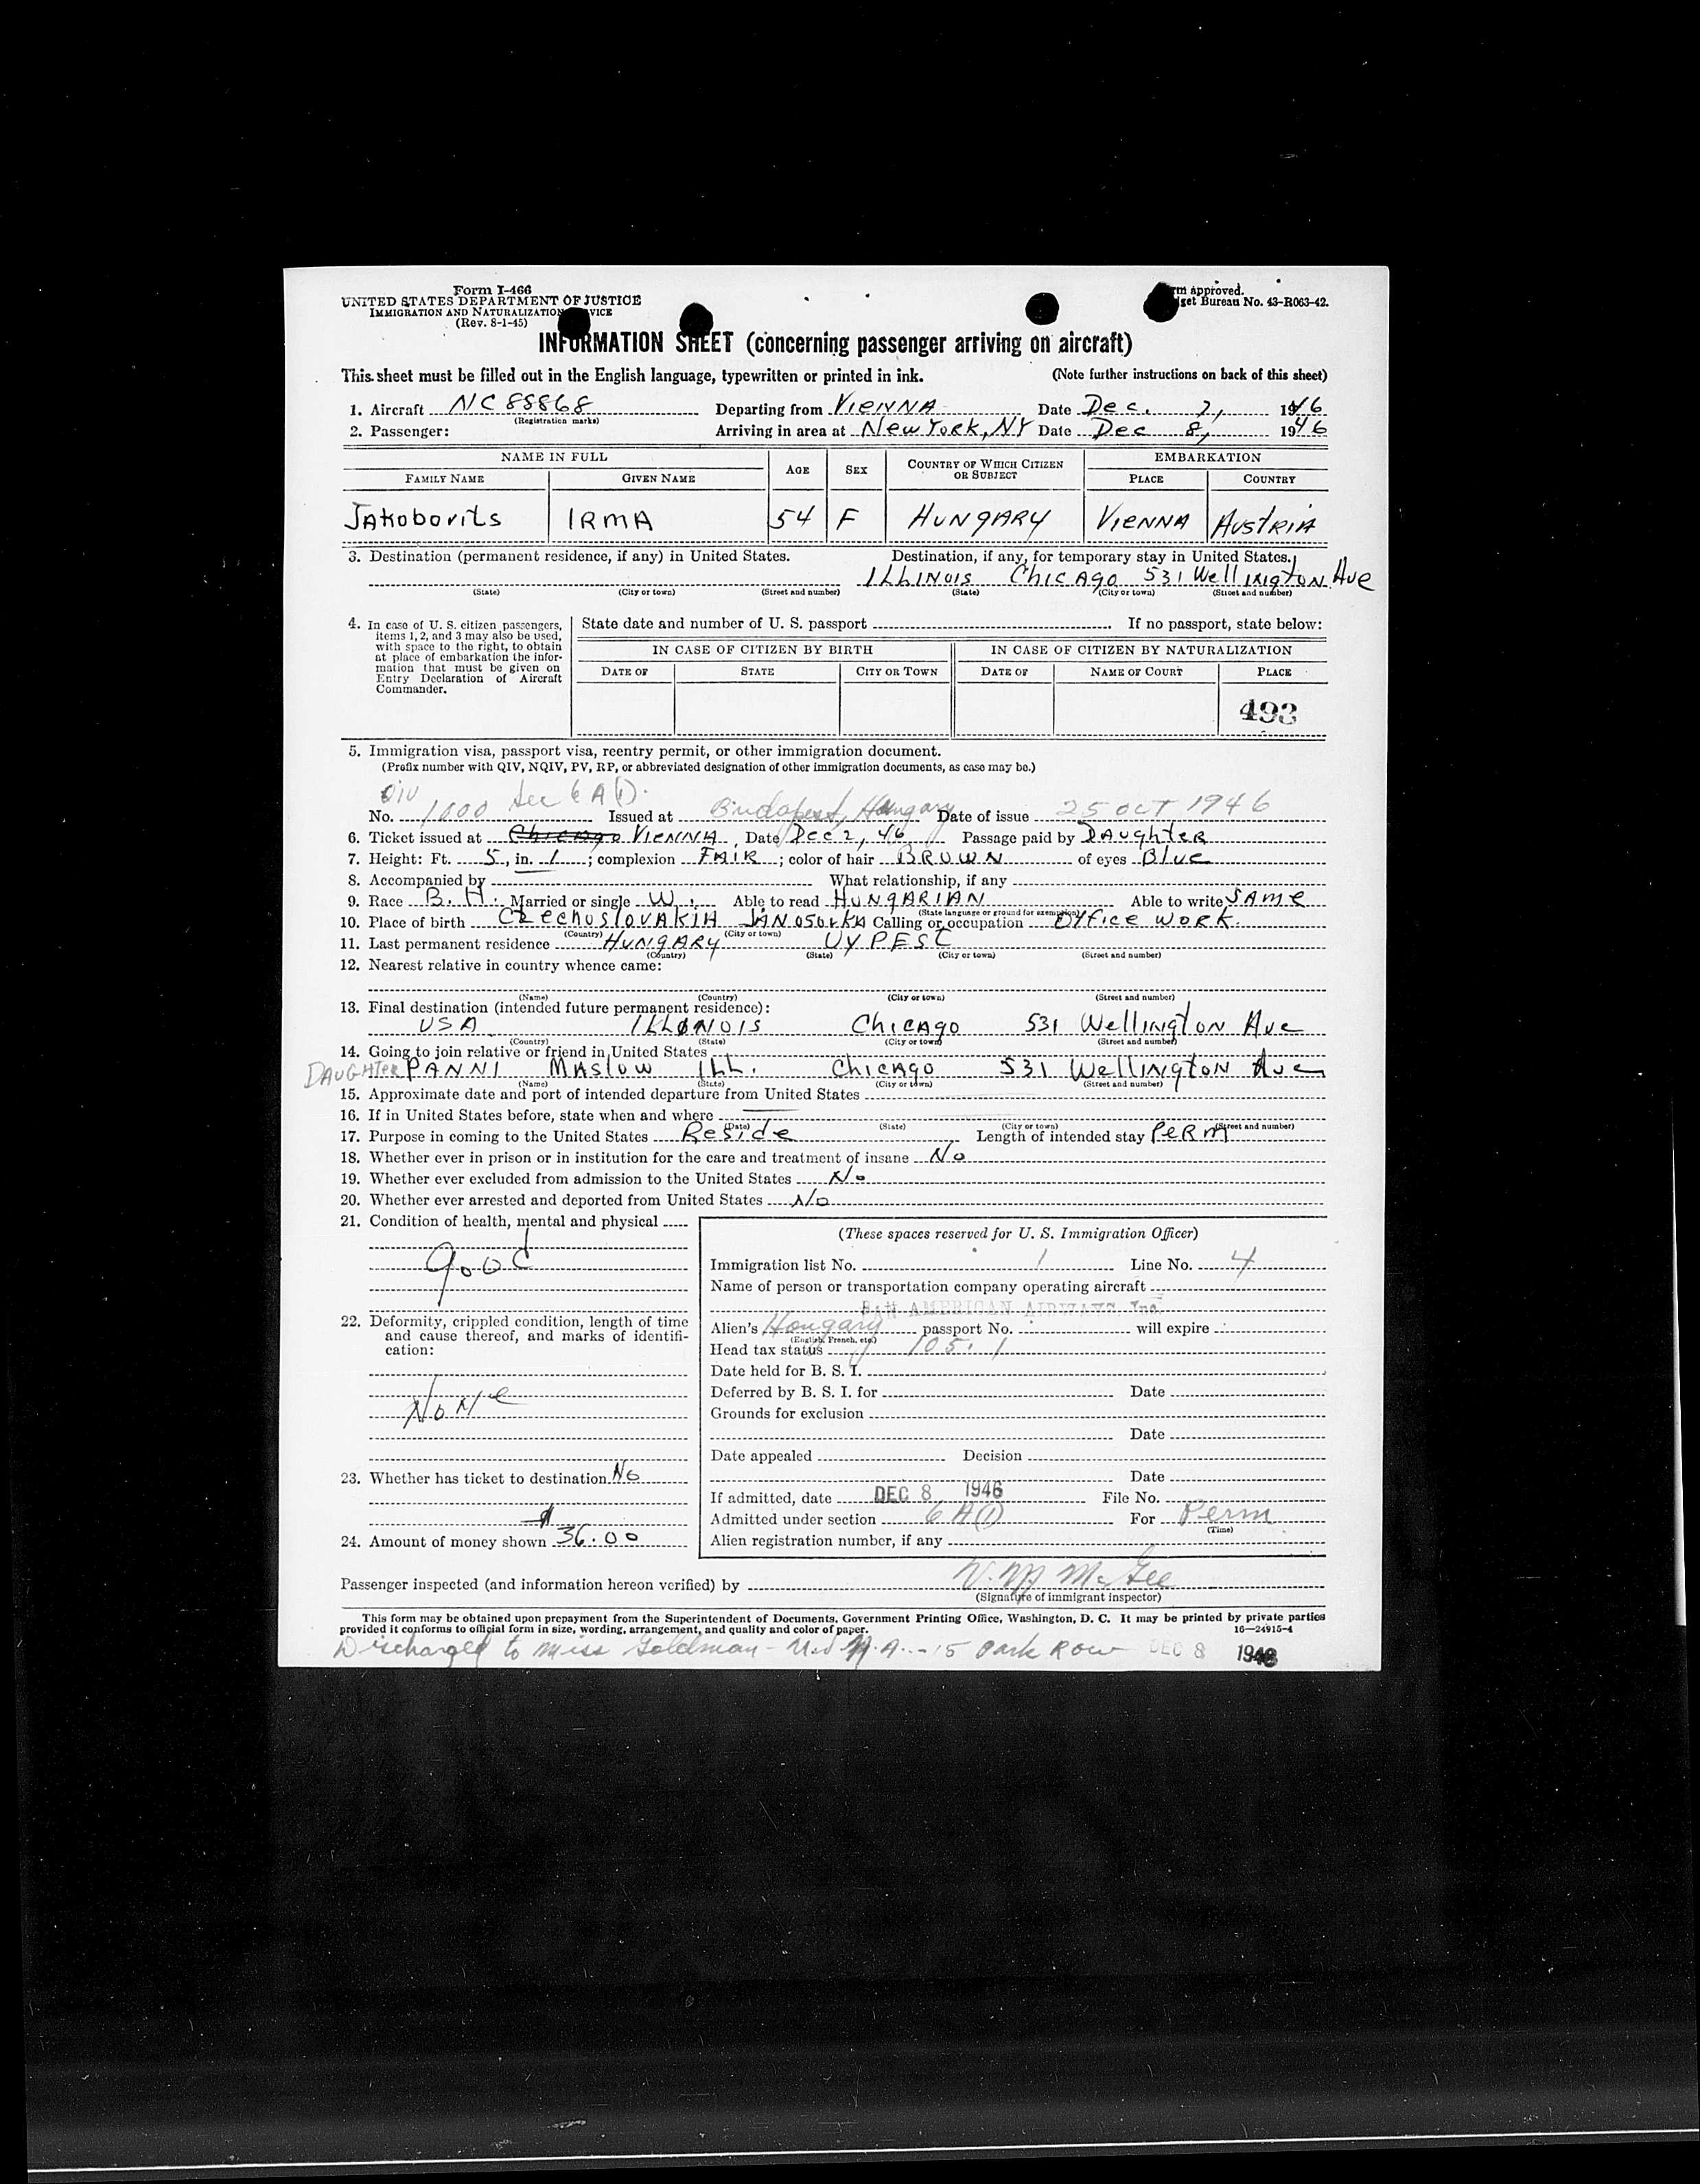 Form I-466
UNITED STATES DEPARTMENT OF JUSTICE
IMMIGRATION AND NATURALIZATION
(Rev. 8-1-45)
approved.
Bureau No. 43-R063-42.
INFORMATION SHEET (concerning passenger arriving on aircraft)
This sheet must be filled out in the English language, typewritten or printed in ink. (Note further instructions on back of this sheet)
1. Aircraft NC 88868 Departing from VIENNA Date Dec. 2, 1946
(Registration marks)
2. Passenger: Arriving in area at New York, NY Date Dec 8, 1946
NAME IN FULL AGE SEX COUNTRY OF WHICH CITIZEN OR SUBJECT EMBARKATION
FAMILY NAME GIVEN NAME PLACE COUNTRY
JAKoborits IRMA 54 F HUNGARY VIENNA AUSTRIA
3. Destination (permanent residence, if any) in United States. Destination, if any, for temporary stay in United States.
ILLINOIS CHICAGO 531 Wellington Ave
(State) (City or town) (Street and number) (State) (City or town) (Street and number)
4. In case of U. S. citizen passengers, items 1, 2, and 3 may also be used, with space to the right, to obtain at place of embarkation the information that must be given on Entry Declaration of Aircraft Commander.
State date and number of U. S. passport If no passport, state below:
IN CASE OF CITIZEN BY BIRTH IN CASE OF CITIZEN BY NATURALIZATION
DATE OF STATE CITY OR TOWN DATE OF NAME OF COURT PLACE
493
5. Immigration visa, passport visa, reentry permit, or other immigration document.
(Prefix number with QIV, NQIV, PV, RP, or abbreviated designation of other immigration documents, as case may be.)
Sec 6 A (1).
No. 1000 Issued at Budapest, Hungary Date of issue 25 OCT 1946
6. Ticket issued at Chicago VIENNA, Date Dec 2, 46 Passage paid by DAughter
7. Height: Ft. 5, in. 1; complexion FAIR; color of hair BROWN of eyes Blue
8. Accompanied by What relationship, if any
9. Race B. H. Married or single W. Able to read HUNGARIAN Able to write SAMe
(State language or ground for exemption)
10. Place of birth CZechoslovAKIA JANOSOVKA Calling or occupation OFFice work.
(Country) (City or town)
11. Last permanent residence HUNGARY UYPEST
(Country) (State) (City or town) (Street and number)
12. Nearest relative in country whence came:
(Name) (Country) (City or town) (Street and number)
13. Final destination (intended future permanent residence):
USA ILLINOIS CHICAGO 531 Wellington Ave
(Country) (State) (City or town) (Street and number)
14. Going to join relative or friend in United States
DAUGHTER PANNI MASLOW ILL. CHICAGO 531 Wellington Ave
(Name) (State) (City or town) (Street and number)
15. Approximate date and port of intended departure from United States
16. If in United States before, state when and where
(Date) (State) (City or town) (Street and number)
17. Purpose in coming to the United States Reside Length of intended stay PeRM
18. Whether ever in prison or in institution for the care and treatment of insane No
19. Whether ever excluded from admission to the United States No
20. Whether ever arrested and deported from United States No
21. Condition of health, mental and physical
good
22. Deformity, crippled condition, length of time and cause thereof, and marks of identification:
None
23. Whether has ticket to destination No
24. Amount of money shown $36.00
(These spaces reserved for U. S. Immigration Officer)
Immigration list No. 1 Line No. 4
Name of person or transportation company operating aircraft
PAN AMERICAN AIRWAYS Inc.
Alien's Hongary passport No. will expire
(English, French, etc.)
Head tax status 105.1
Date held for B. S. I.
Deferred by B. S. I. for Date
Grounds for exclusion
Date
Date appealed Decision
Date
If admitted, date DEC 8 1946 File No.
Admitted under section 6 A (1) For Perm
(Time)
Alien registration number, if any
Passenger inspected (and information hereon verified) by V. M McGee
(Signature of immigrant inspector)
This form may be obtained upon prepayment from the Superintendent of Documents, Government Printing Office, Washington, D. C. It may be printed by private parties
provided it conforms to official form in size, wording, arrangement, and quality and color of paper. 16—24915-4
Discharged to Miss Goldman - 15 Park Row DEC 8 1946